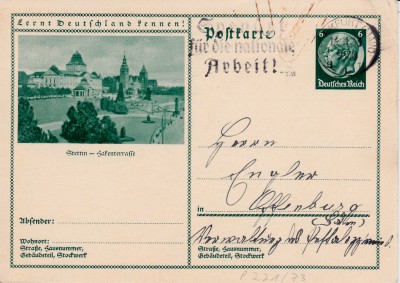 Lernt Deutschland kennen!
Postkarte
für die nationale
Arbeit!
6 6
Deutsches Reich
Stettin – Hakenterrasse
Herrn
Engler
in Offenburg
(Baden)
Absender:
Verwaltung des
Wohnort:
Straße, Hausnummer,
Gebäudeteil, Stockwerk
Straße, Hausnummer,
Gebäudeteil, Stockwerk
P 221/73